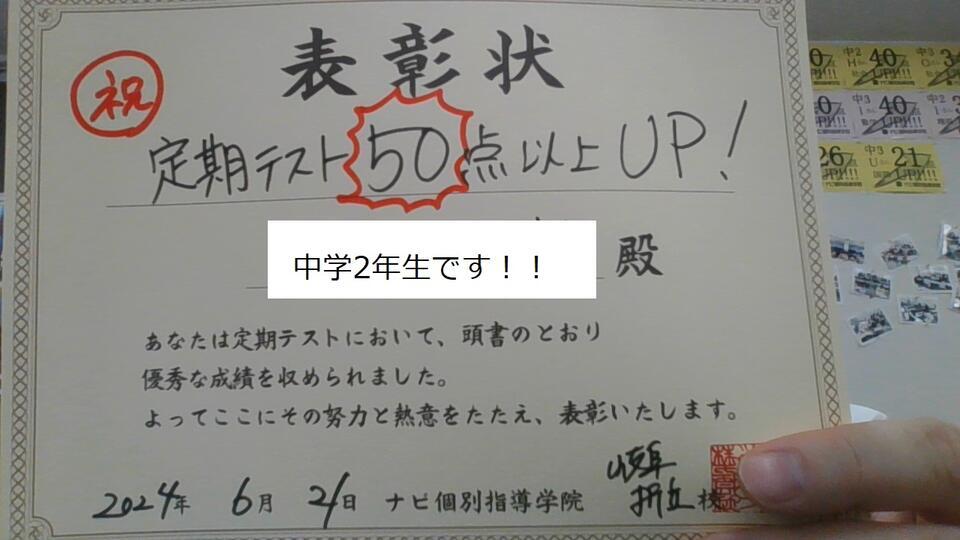 表彰状
祝
定期テスト50点以上UP!
中学2年生です！！
殿
あなたは定期テストにおいて、頭書のとおり
優秀な成績を収められました。
よってここにその努力と熱意をたたえ、表彰いたします。
2024年 6月 21日 ナビ個別指導学院 岐阜
折立校
中2
40
UP!!!
中3
中3
40
UP!!!
中2
26
UP!!!
中3
U
21
UP!!!